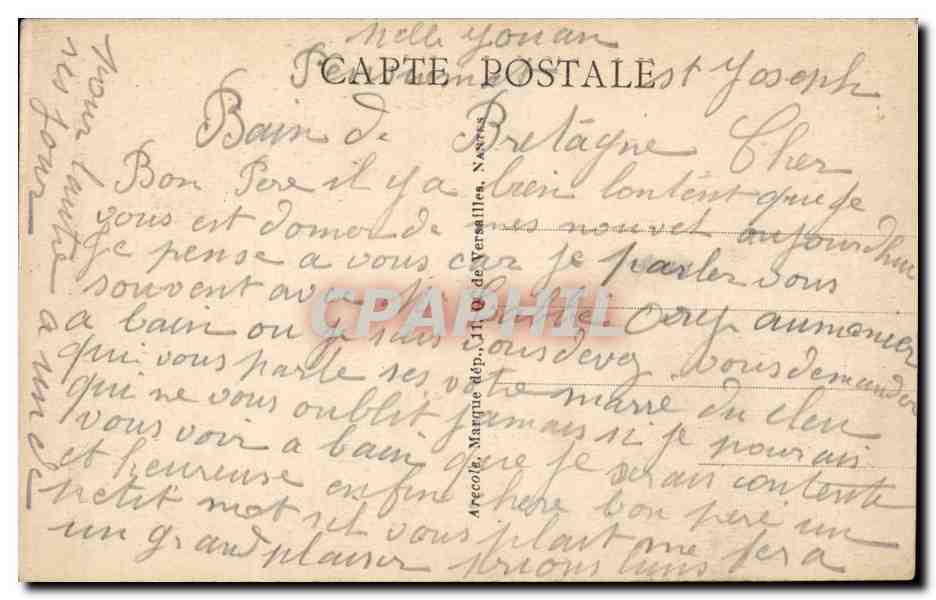 Melle Yonan
CARTE POSTALE
St Joseph
Bain de Bretagne Cher
Bon Pere il y a bien lontent que je
vous est domer de mes nouvel aujourdhui
je pense a vous car je parler vous
souvent avec aumonier
a bain ou je suis vous devez vous demander
qui vous parle ses votre marre du cleu
qui ne vous oublit jamais si je pourais
vous voir a bain que je serais contente
et heureuse enfin here bon pere un
petit mot sil vous plait me fera
un grand plaiser prions
a
nes jour
Arecole, Marque dép., 11, Q. de Versailles, NANTES
CPAPHIL